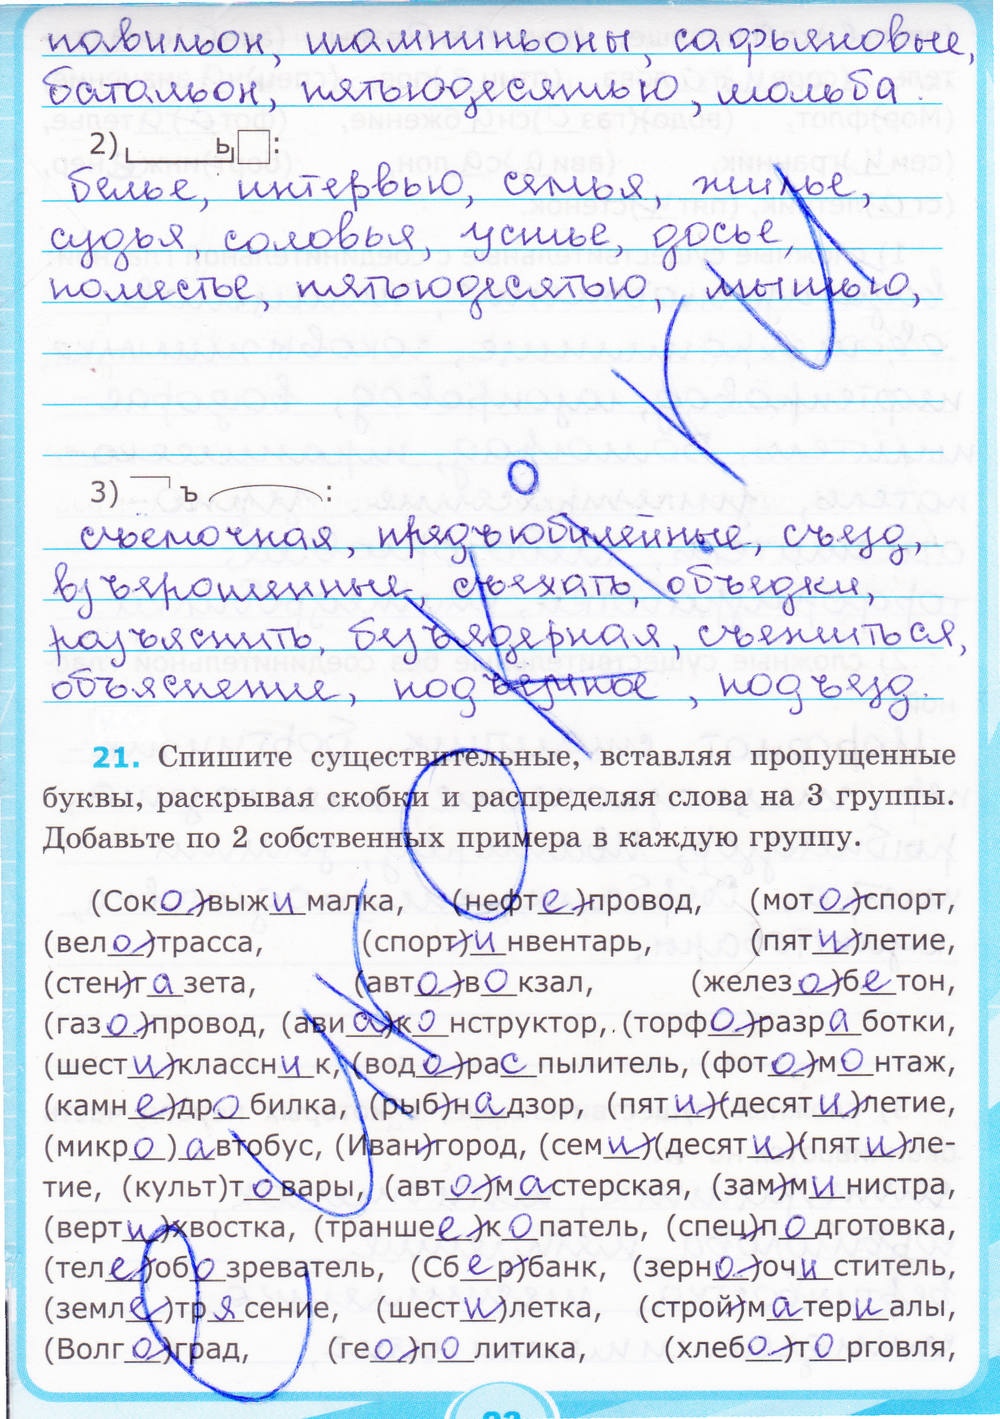 павильон, шампиньоны, сафьяновые,
батальон, пятьюдесятью, мольба.
2) ь :
бельё, интервью, семья, жильё,
судья соловья, устье, досье,
поместье, пятьюдесятью, мышью,
3) ъ :
съёмочная, предъюбилейные, съезд,
взъерошенные съехать, объедки,
разъяснить, безъядерная, съёжиться,
объяснение, подъёмное, подъезд.
21. Спишите существительные, вставляя пропущенные
буквы, раскрывая скобки и распределяя слова на 3 группы.
Добавьте по 2 собственных примера в каждую группу.
(Соко)выжималка, (нефте)провод, (мото)спорт,
(вело)трасса, (спорт)инвентарь, (пяти)летие,
(стен)газета, (авто)вокзал, (железо)бетон,
(газо)провод, (авиа)конструктор, (торфо)разработки,
(шести)классник, (водо)распылитель, (фото)монтаж,
(камне)дробилка, (рыб)надзор, (пяти)(десяти)летие,
(микро)автобус, (Иван)город, (семи)(десяти)(пяти)ле-
тие, (культ)товары, (авто)мастерская, (зам)министра,
(верти)хвостка, (траншее)копатель, (спец)подготовка,
(теле)обозреватель, (Сбер)банк, (зерно)очиститель,
(земле)трясение, (шести)летка, (строй)материалы,
(Волго)град, (гео)политика, (хлебо)торговля,